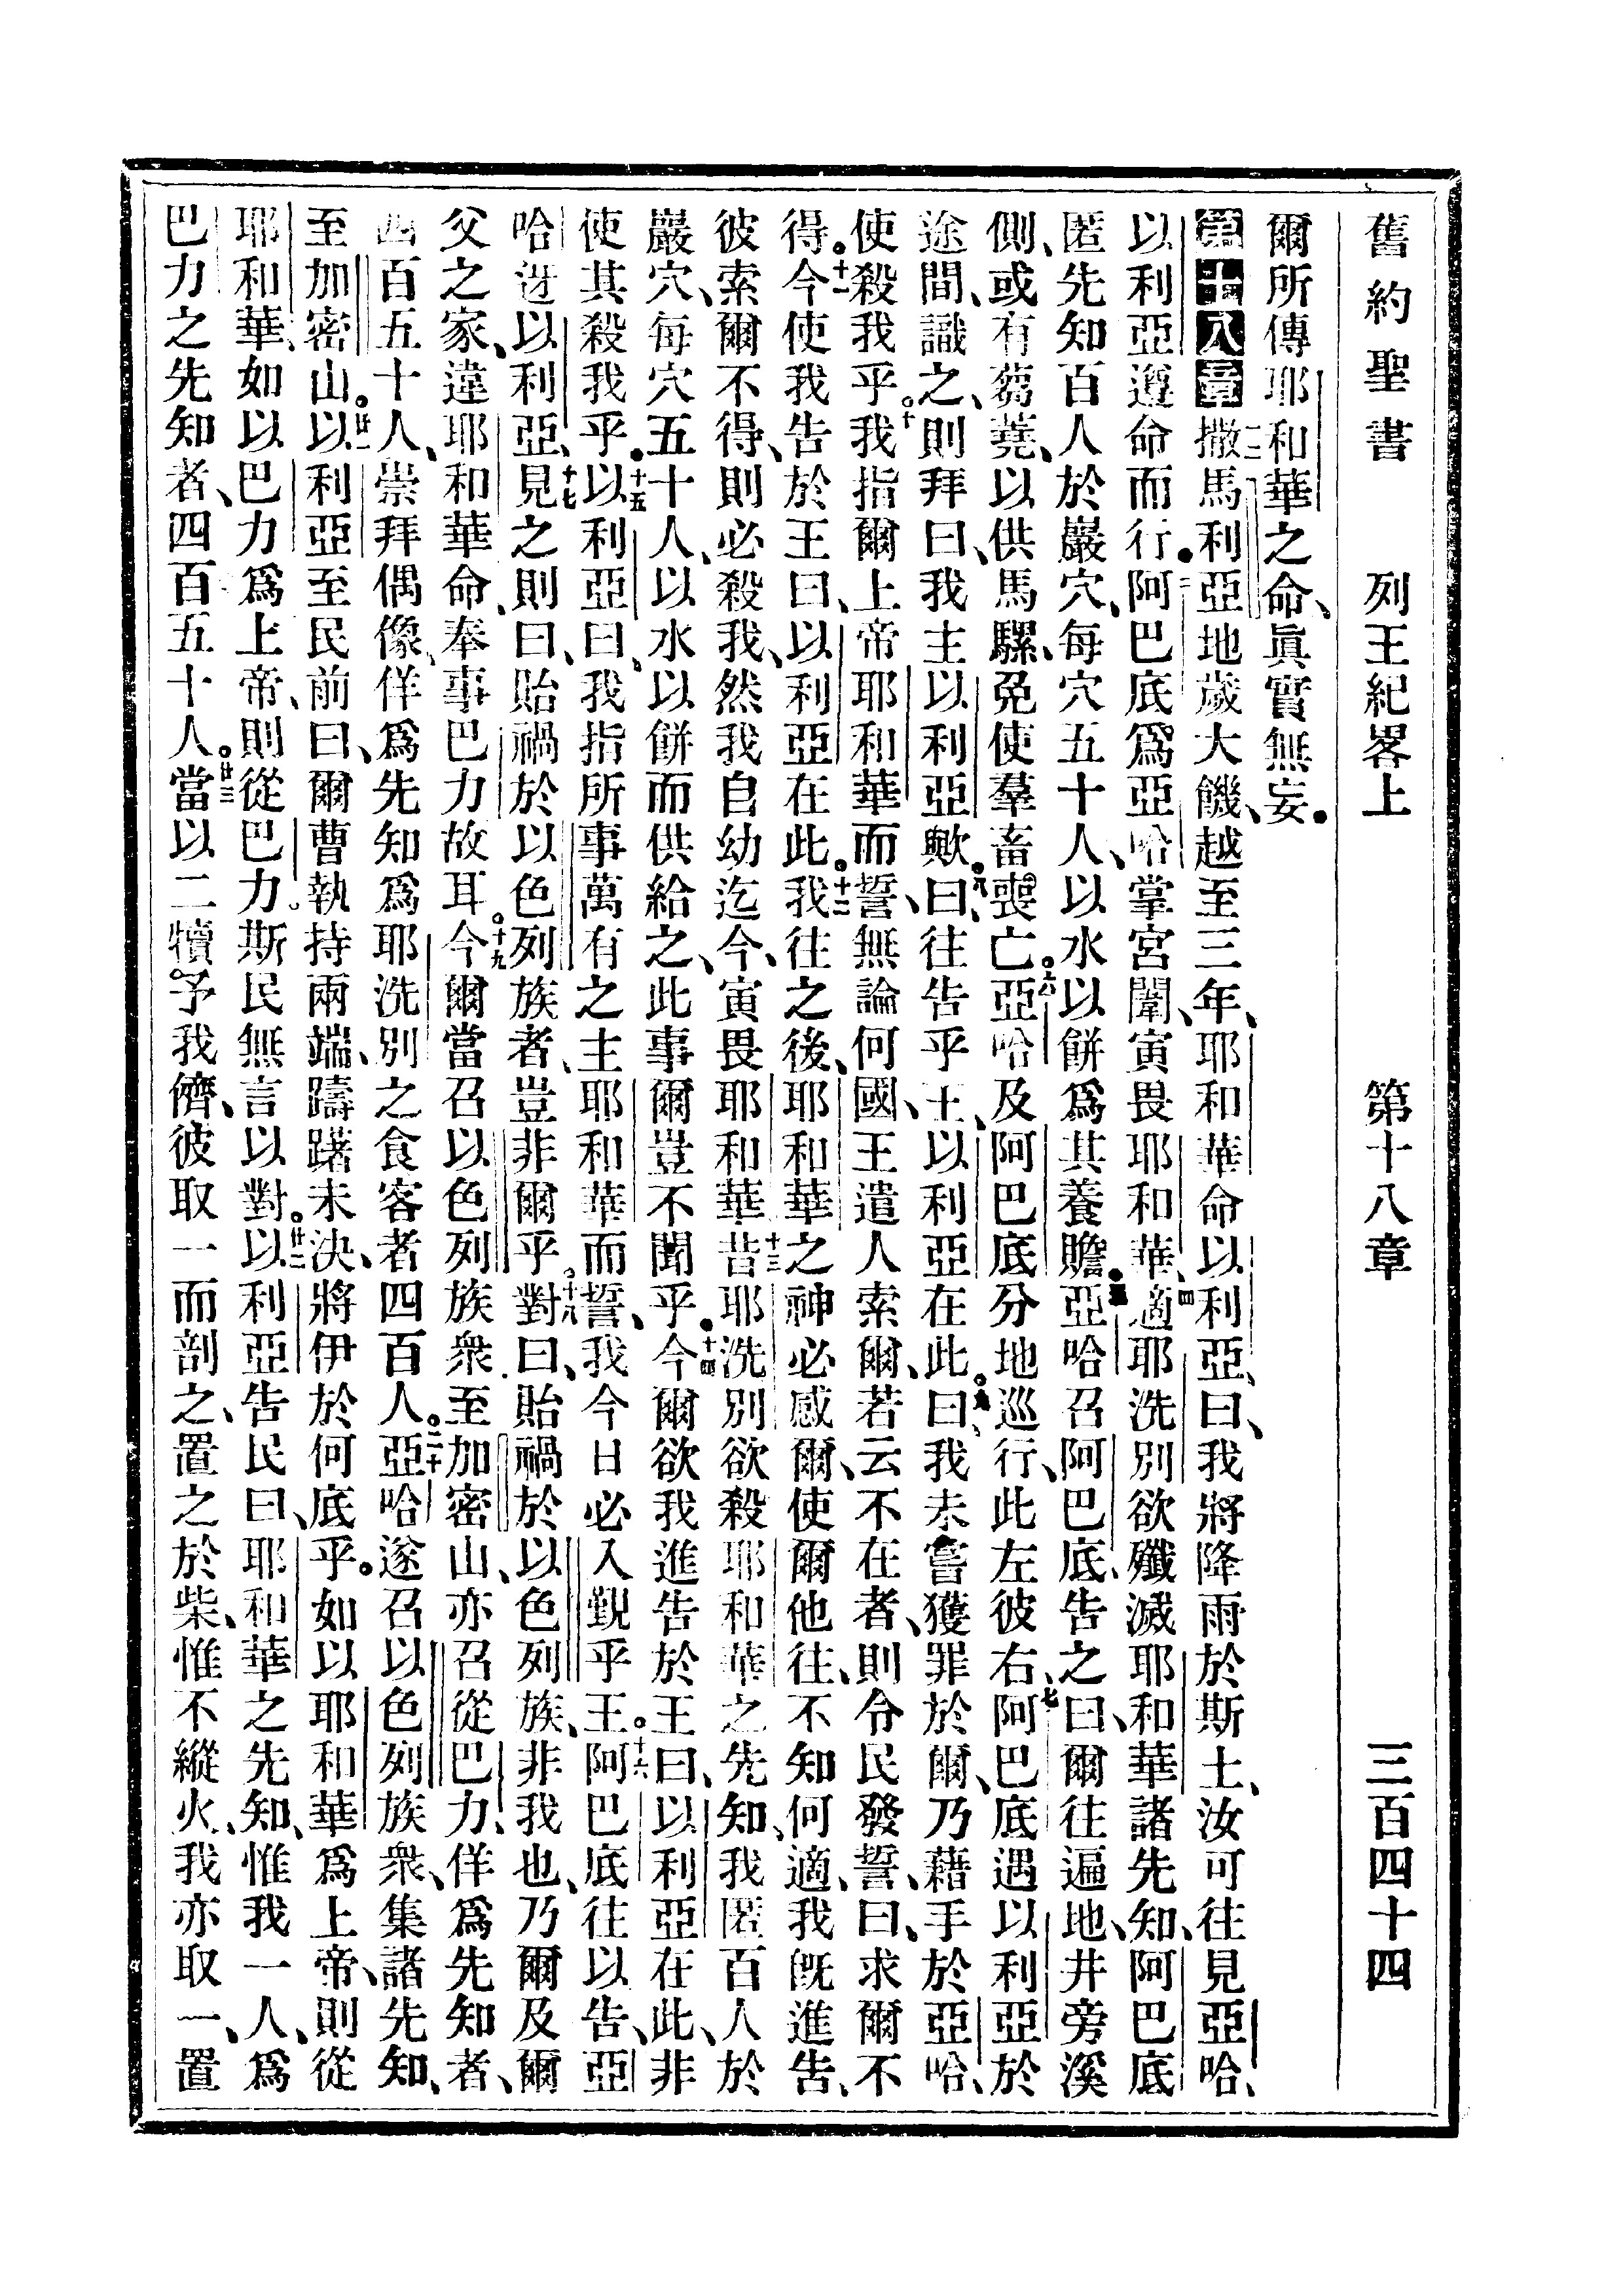 舊約聖書 列王紀畧上 第十八章 三百四十四
爾所傳耶和華之命、眞實無妄。
第十八章 一撒馬利亞地歲大饑、越至三年、耶和華命以利亞、曰、我將降雨於斯土、汝可往見亞哈、
以利亞遵命而行。三阿巴底爲亞哈掌宮闈、寅畏耶和華、四適耶洗別欲殲滅耶和華諸先知、阿巴底
匿先知百人於巖穴、每穴五十人、以水以餅爲其養贍。五亞哈召阿巴底、告之曰、爾往遍地、井旁溪
側、或有蒭蕘、以供馬騾、免使羣畜喪亡。六亞哈及阿巴底分地巡行、此左彼右、七阿巴底遇以利亞於
途間、識之、則拜曰、我主以利亞歟。八曰、往告乎王、以利亞在此。九曰、我未嘗獲罪於爾、乃藉手於亞哈、
使殺我乎。十我指爾上帝耶和華而誓、無論何國、王遣人索爾、若云不在者、則令民發誓、曰、求爾不
得。十一今使我告於王曰、以利亞在此。十二我往之後、耶和華之神必感爾、使爾他往、不知何適、我旣進告、
彼索爾不得、則必殺我、然我自幼迄今、寅畏耶和華、十三昔耶洗別欲殺耶和華之先知、我匿百人於
巖穴、每穴五十人、以水以餅而供給之、此事爾豈不聞乎。十四今爾欲我進告於王曰、以利亞在此、非
使其殺我乎。十五以利亞曰、我指所事萬有之主耶和華而誓、我今日必入覲乎王。十六阿巴底往以告、亞
哈迓以利亞、十七見之則曰、貽禍於以色列族者、豈非爾乎。十八對曰、貽禍於以色列族、非我也、乃爾及爾
父之家、違耶和華命、奉事巴力故耳。十九今爾當召以色列族衆、至加密山、亦召從巴力、佯爲先知者、
四百五十人、崇拜偶像、佯爲先知爲耶洗別之食客者四百人。二十亞哈遂召以色列族衆、集諸先知、
至加密山。廿一以利亞至民前曰、爾曹執持兩端、躊躇未決、將伊於何底乎。如以耶和華爲上帝、則從
耶和華、如以巴力爲上帝、則從巴力。斯民無言以對。廿二以利亞告民曰、耶和華之先知、惟我一人、爲
巴力之先知者、四百五十人。廿三當以二犢予我儕、彼取一而剖之、置之於柴、惟不縱火、我亦取一、置